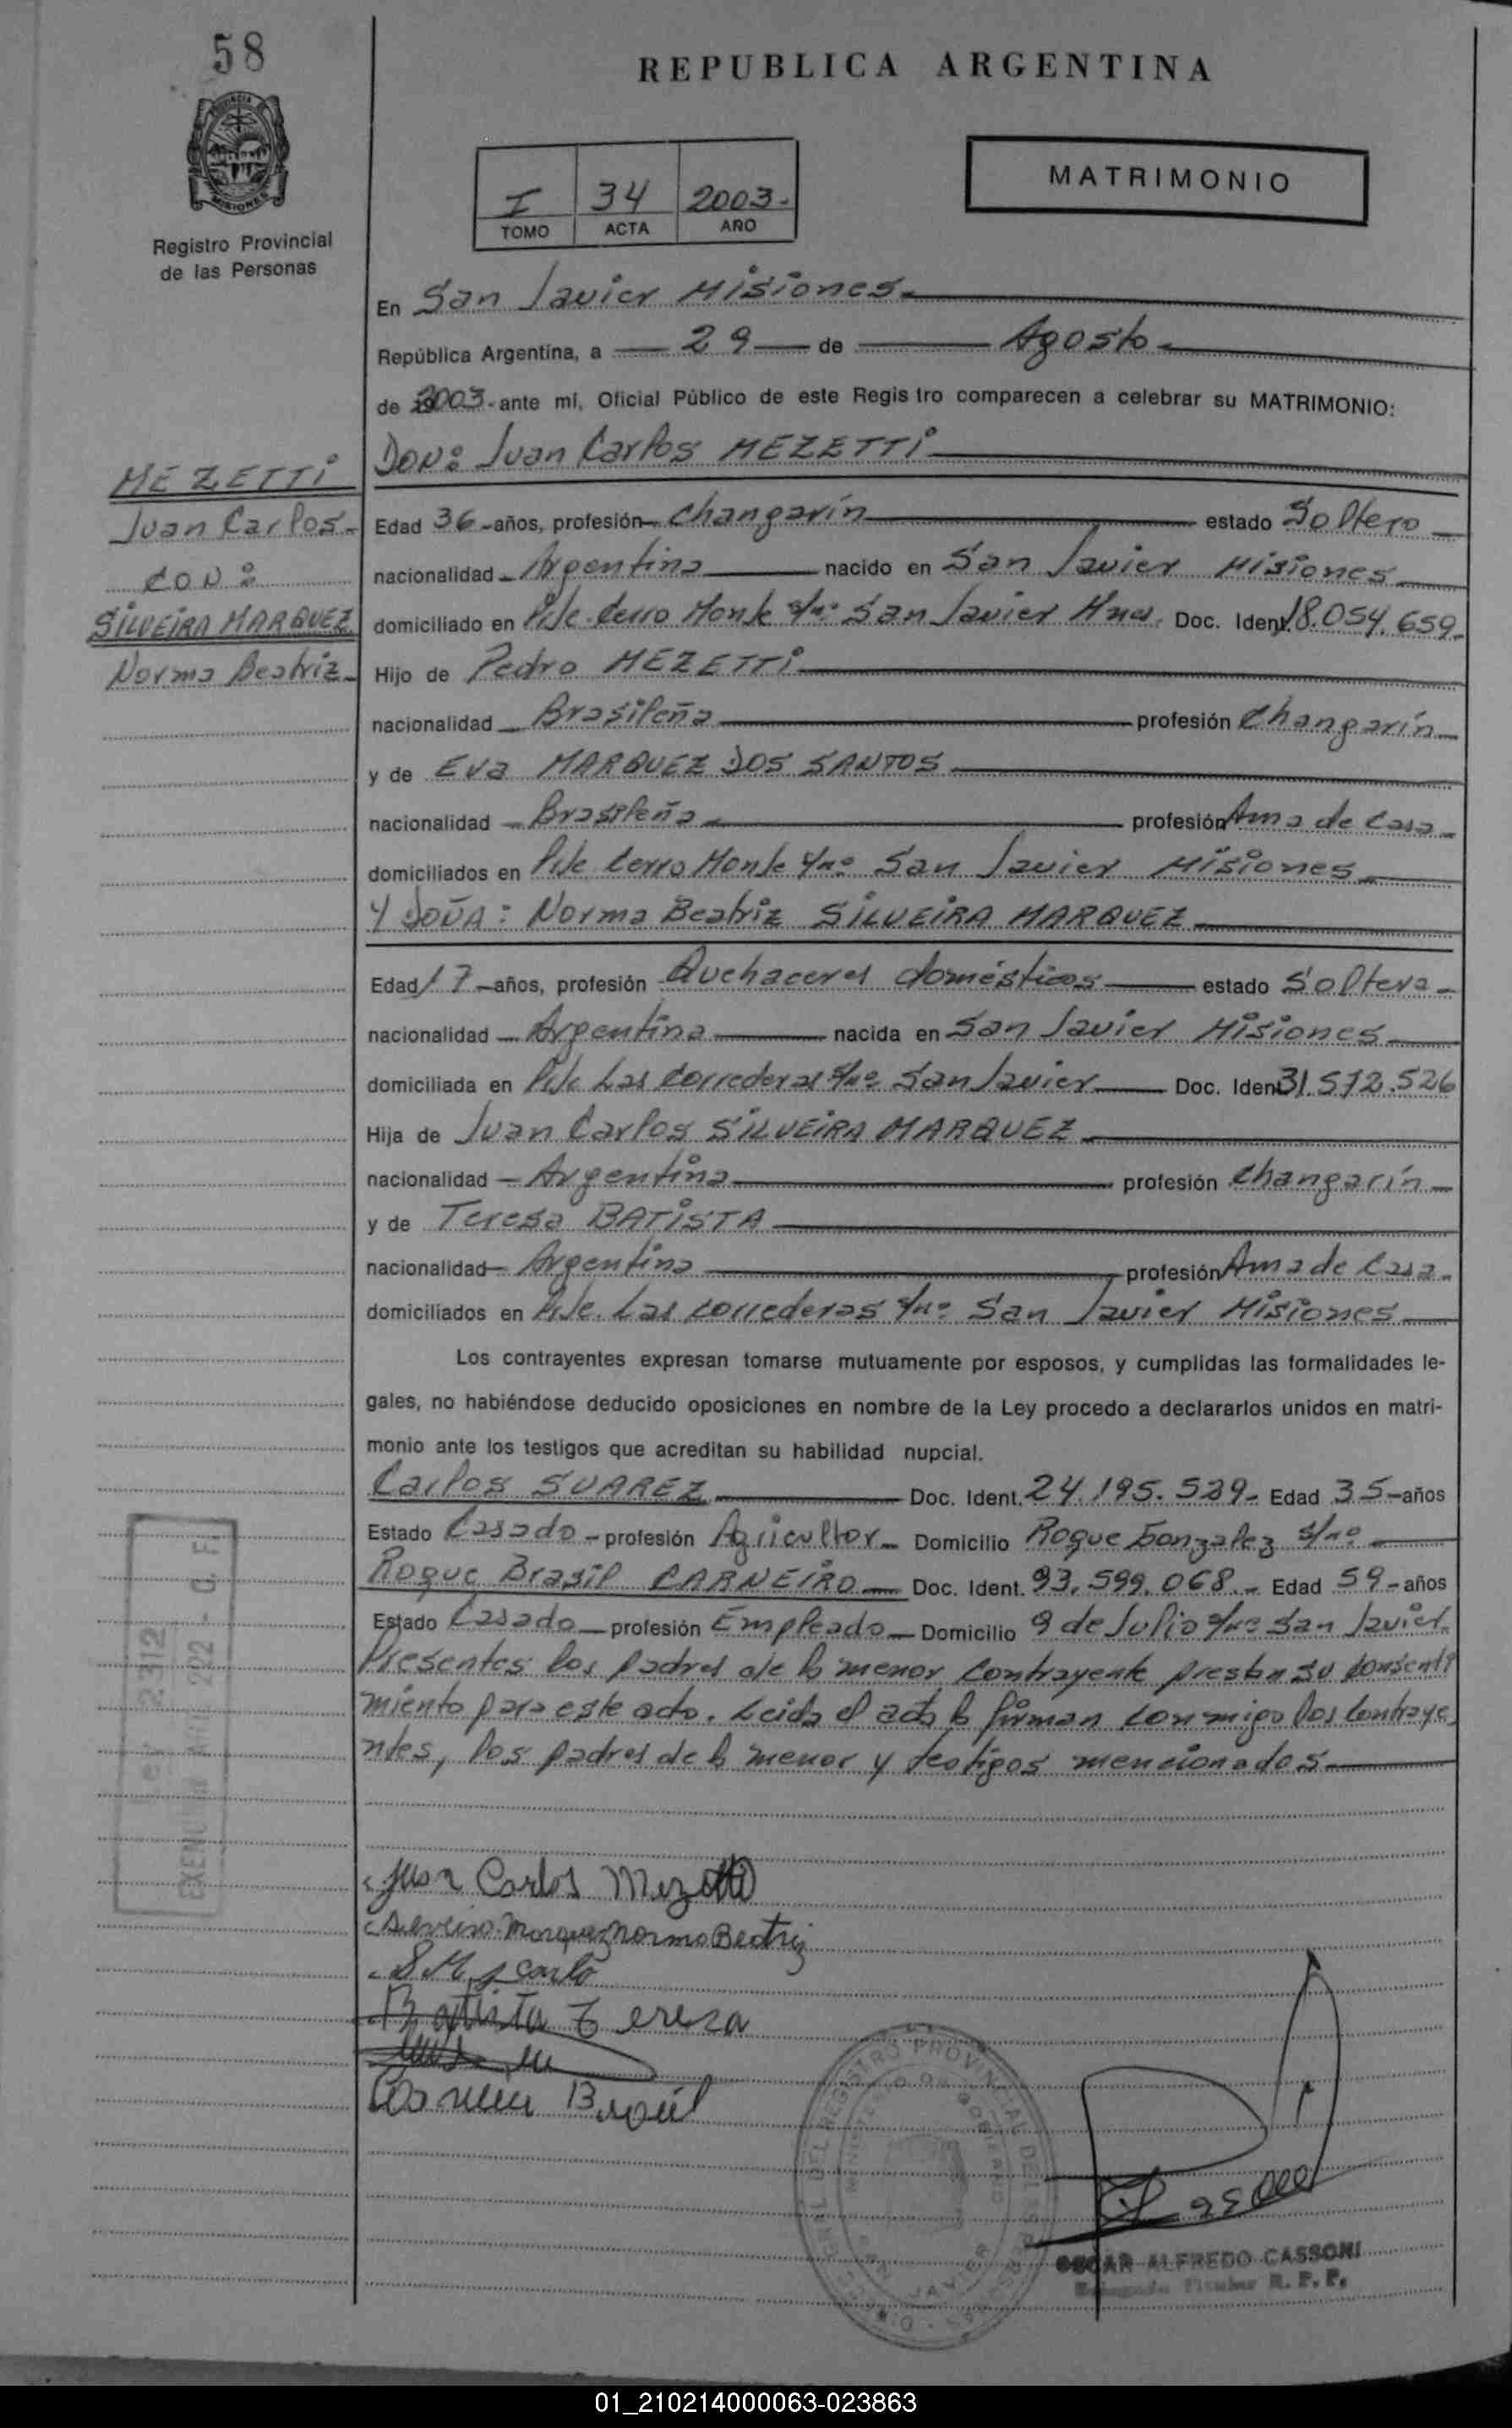 58
REPUBLICA ARGENTINA
PROVINCIA DE
MISIONES
Registro Provincial
de las Personas
I 34 2003.-
TOMO ACTA AÑO
MATRIMONIO
En San Javier Misiones.-
República Argentina, a 29 de Agosto.-
de 2003.- ante mí, Oficial Público de este Regis tro comparecen a celebrar su MATRIMONIO:
DON: Juan Carlos MEZETTI
MEZETTI
Juan Carlos.-
CON:
SILVEIRA MARQUEZ
Norma Beatriz.-
Edad 36 -años, profesión Changarín estado Soltero
nacionalidad Argentina nacido en San Javier Misiones
domiciliado en Pje. Cerro Monte s/nº San Javier Mnes. Doc. Ident. 18.054.659.-
Hijo de Pedro MEZETTI
nacionalidad Brasileña profesión Changarín
y de Eva MARQUEZ DOS SANTOS
nacionalidad Brasileña profesión Ama de Casa
domiciliados en Pje Cerro Monte s/nº San Javier Misiones
Y DOÑA: Norma Beatriz SILVEIRA MARQUEZ
Edad 17 -años, profesión Quehaceres domésticos estado Soltera
nacionalidad Argentina nacida en San Javier Misiones
domiciliada en Pje Las Correderas s/nº San Javier Doc. Ident 31.572.526
Hija de Juan Carlos SILVEIRA MARQUEZ
nacionalidad Argentina profesión Changarín
y de Teresa BATISTA
nacionalidad Argentina profesión Ama de Casa
domiciliados en Pje. Las Correderas s/nº San Javier Misiones
Los contrayentes expresan tomarse mutuamente por esposos, y cumplidas las formalidades le-
gales, no habiéndose deducido oposiciones en nombre de la Ley procedo a declararlos unidos en matri-
monio ante los testigos que acreditan su habilidad nupcial.
Carlos SUAREZ Doc. Ident. 24.195.529.- Edad 35 -años
Estado Casado profesión Agricultor Domicilio Roque Gonzalez s/nº
Roque Brasil CARNEIRO Doc. Ident. 93.599.068.- Edad 59 -años
Estado Casado profesión Empleado Domicilio 9 de Julio s/nº San Javier.
Presentes los padres de la menor contrayente prestan su consenti
miento para este acto. Leida el acta la firman conmigo los contraye
ntes, los padres de la menor y testigos mencionados
Ley 2312
EXENTO Art. 222 - C. F.
Juan Carlos Mezetti
Silveira Marquez Norma Beatriz
S M J Carlo
Batista Tereza
Carneiro Brasil
DEL REGISTRO PROVINCIAL DE LAS PERSONAS
MINISTERIO DE GOBIERNO
SAN JAVIER
OSCAR ALFREDO CASSONI
Delegado Titular R. P. P.
01_210214000063-023863